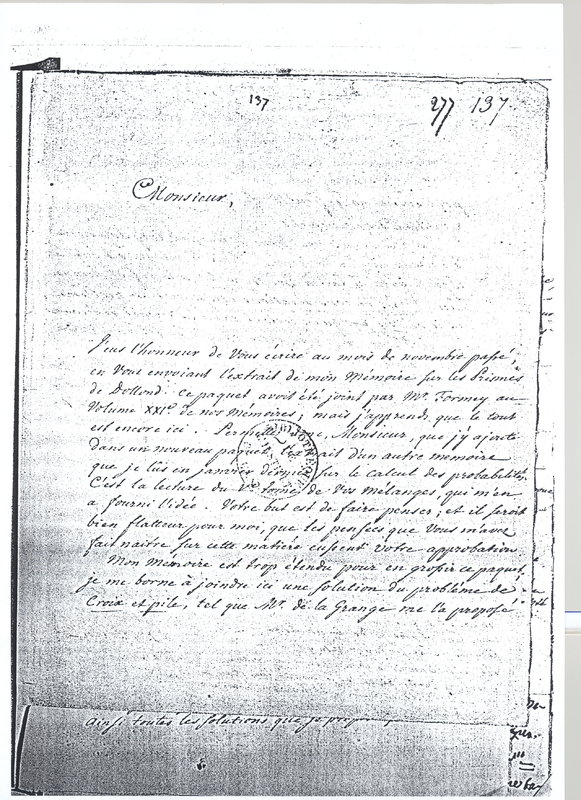 137
277 137.
Monsieur,
J'eus l'honneur de Vous écrire au mois de novembre passé,
en Vous envoiant l'extrait de mon Mémoire sur les Prismes
de Dollond. Ce paquet avoit été joint par Mr. Formey au
Volume XXIe de nos Memoires; mais j'apprends que le tout
est encore ici. Monsieur, que j'y ajoute
dans un nouveau paquet, l'extrait d'un autre memoire
que je lûs en janvier dernier sur le calcul des probabilités.
C'est la lecture du Ve tome de Vos Mélanges, qui m'en
a fourni l'idée. Votre but est de faire penser; et il seroit
bien flatteur pour moi, que les pensées que Vous m'avez
fait naitre sur cette matiére eussent Votre approbation.
Mon Memoire est trop étendu pour en grossir ce paquet,
je me borne à joindre ici une solution du problème de
Croix et pile, tel que Mr. de la Grange me l'a proposé
Ainsi toutes les solutions que je